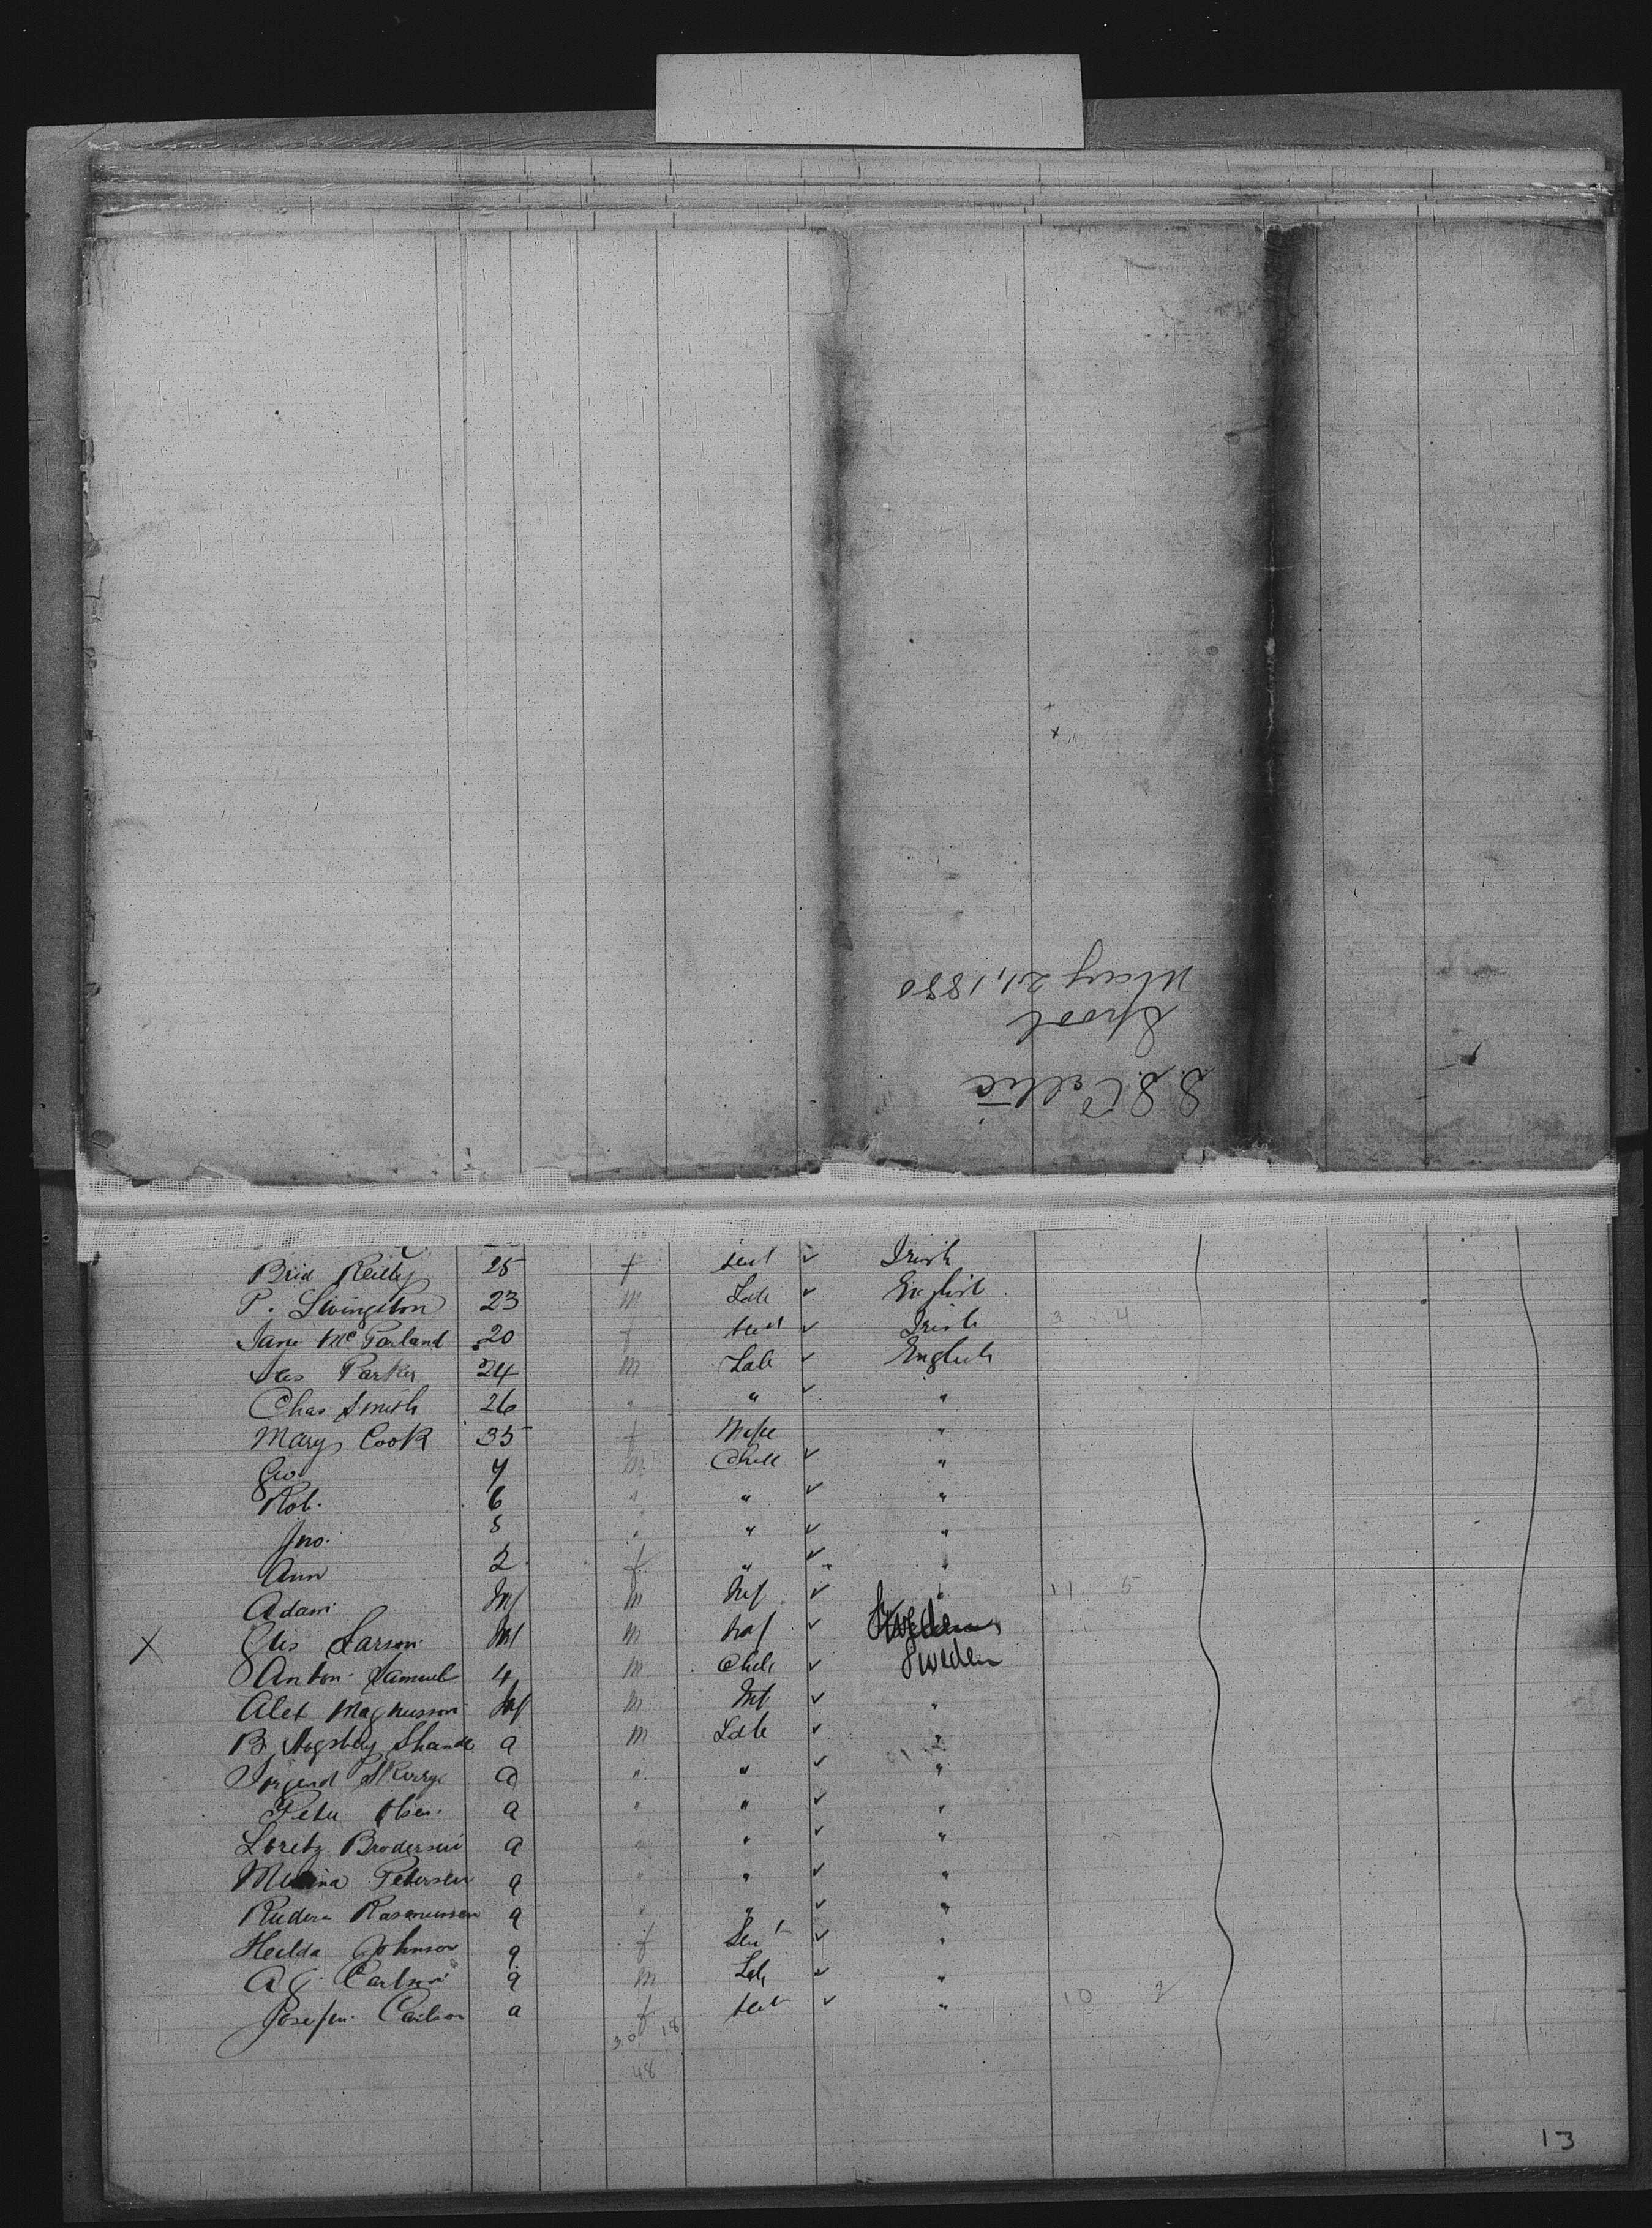 S.S. Celtic
May 21, 1880
Brid Reilly 25 f Sert ✓ Irish
P. Livingston 23 m Lab ✓ English
Jane McParland 20 f Sert ✓ Irish 3 4
Jas Parker 24 m Lab ✓ English
Chas Smith 26 " " ✓ "
Mary Cook 35 f Wife "
Geo 7 m Chil ✓ "
Rob. 6 " " ✓ "
Jno. 5 " " ✓ "
Ann 2 f " ✓ "
Adam Inf m Inf ✓ " 11 5
X Larson Inf m Inf ✓
Anton Samuel 4 m Chil ✓ Sweden
Alex Magnusson Inf m Inf ✓ "
B. a m Lab ✓ "
a " " ✓ "
Peter Olsen a " " ✓ "
Loretz Brodersen a " " ✓ "
Petersen a " " ✓ "
Rasmussen a " " ✓ "
Hulda Johnson a f Sert ✓ "
A G Carlson a m Lab ✓ "
Carlson a f Sert ✓ " 10 2
30 18
48
13